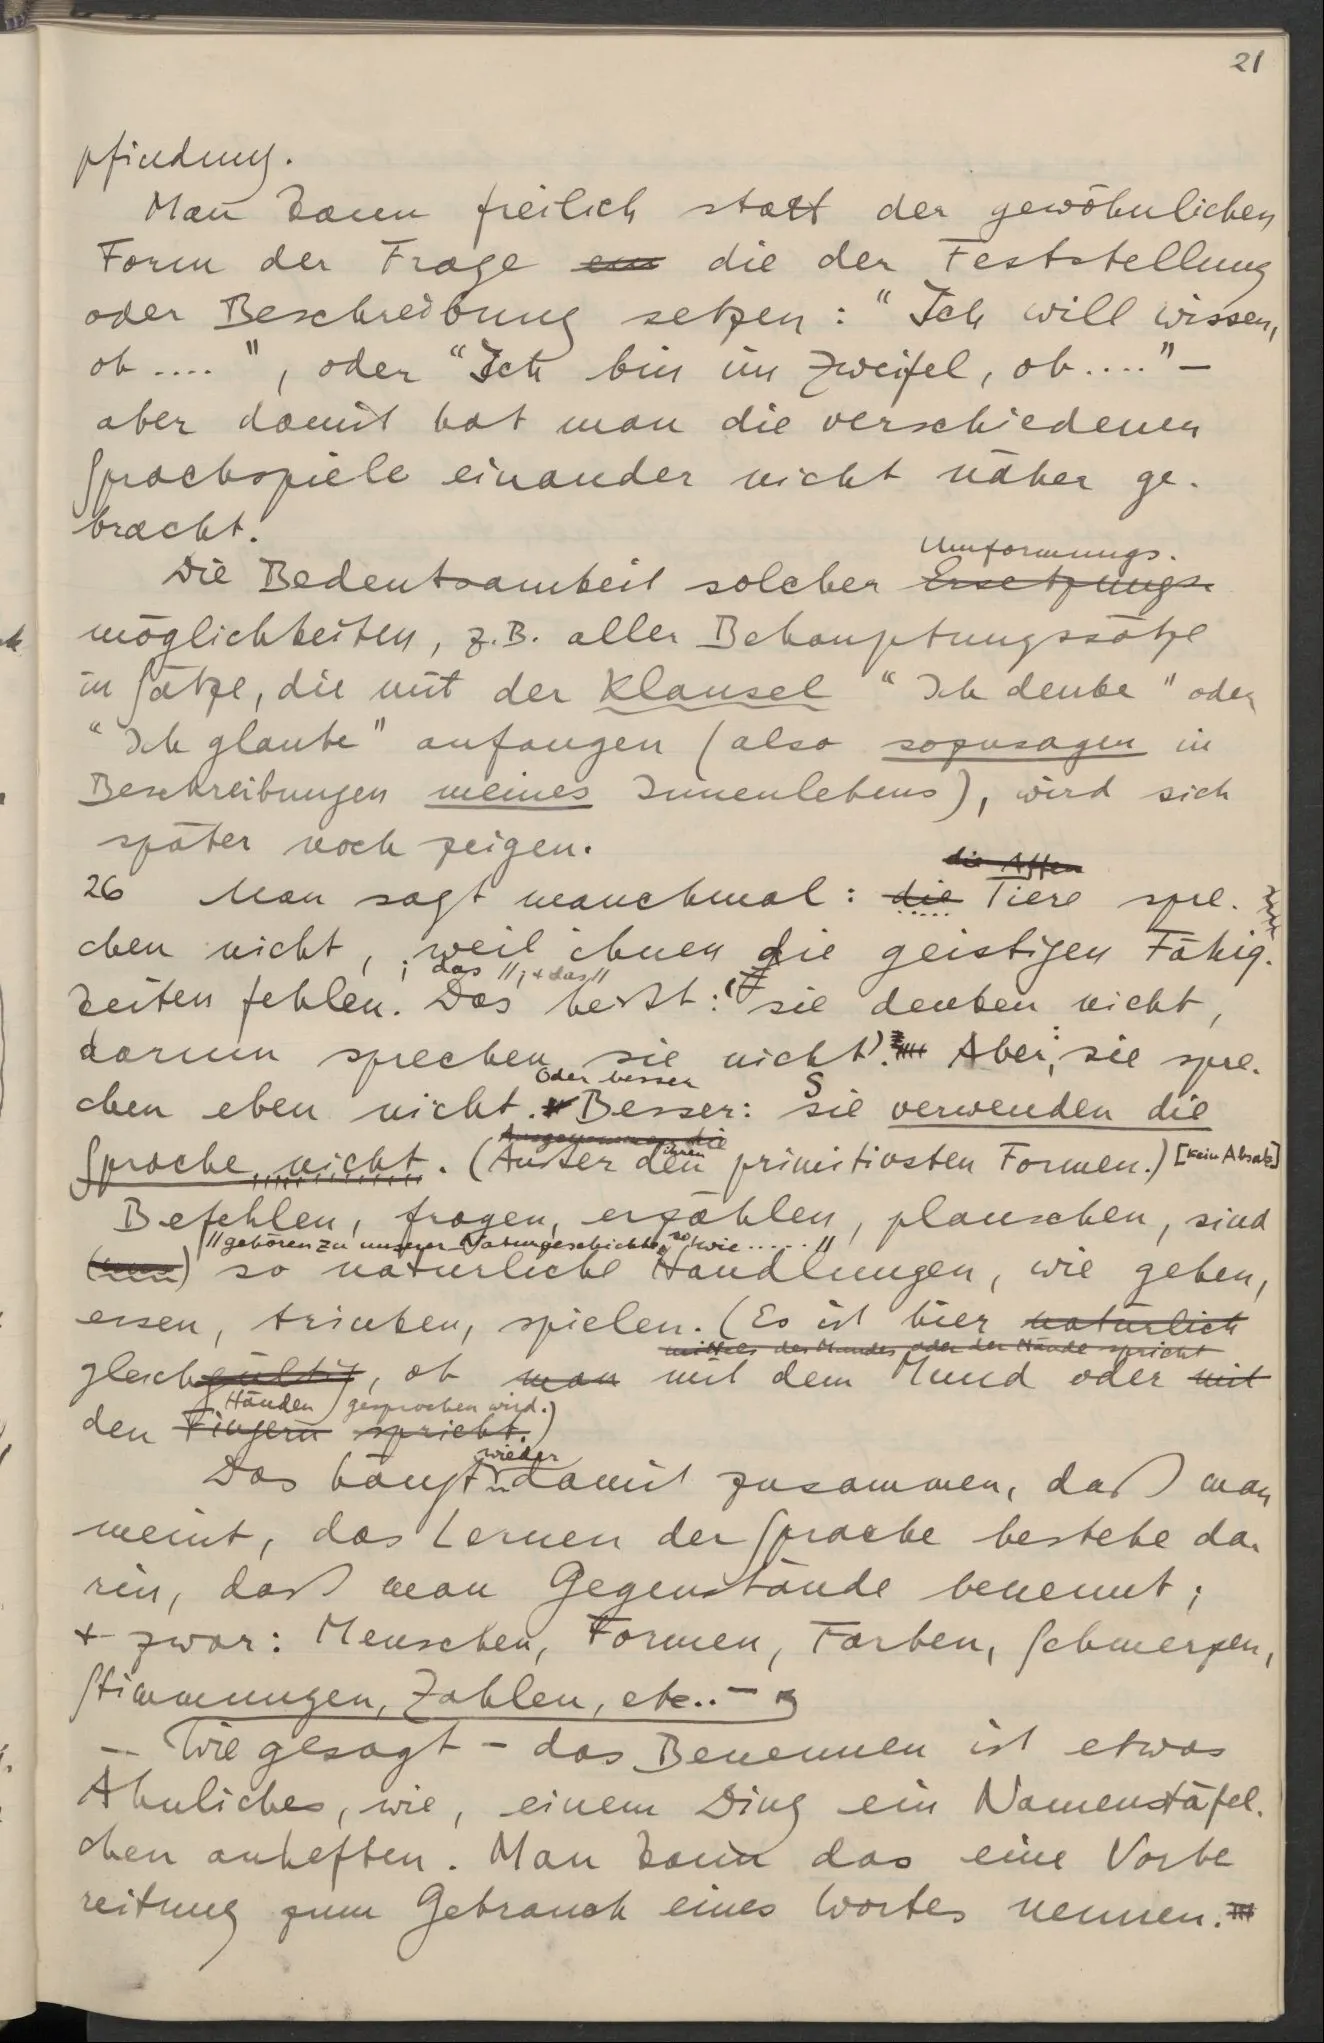 21
pfindung.
Man kann freilich statt der gewöhnlichen
Form der Frage ein die der Feststellung
oder Beschreibung setzen: “Ich will wissen,
ob ....”, oder “Ich bin im Zweifel, ob ....” –
aber damit hat man die verschiedenen
Sprachspiele einander nicht näher ge-
bracht.
Umformungs-
Die Bedeutsamkeit solcher Ersetzungs-
möglichkeiten, z.B. aller Behauptungssätze
in Sätze, die mit der Klausel “Ich denke” oder
“Ich glaube” anfangen (also sozusagen in
Beschreibungen meines Innenlebens), wird sich
später noch zeigen.
die Affen
26 Man sagt manchmal: die Tiere spre-
chen nicht, weil ihnen die geistigen Fähig-
; das //; + das //
keiten fehlen. Das heißt: “sie denken nicht,
darum sprechen sie nicht”. Aber: sie spre-
oder besser
chen eben nicht. Besser: Sie verwenden die
Ausgenommen die
ihren
Sprache nicht. (Außer den primitivsten Formen.) [Kein Absatz]
Befehlen, fragen, erzählen, plauschen, sind
// gehören zu unserer Naturgeschichte so, wie ...... //
(nun) so natürliche Handlungen, wie gehen,
essen, trinken, spielen. (Es ist hier natürlich
mittels des Mundes oder der Hände spricht
gleichgültig, ob man mit dem Mund oder mit
Händen gesprochen wird.)
den Fingern spricht.)
wieder
Das hängt damit zusammen, daß man
meint, das Lernen der Sprache bestehe da-
rin, daß man Gegenstände benennt;
+ zwar: Menschen, Formen, Farben, Schmerzen,
Stimmungen, Zahlen, etc.. –
– Wie gesagt – das Benennen ist etwas
Ähnliches, wie, einem Ding ein Namenstäfel-
chen anheften. Man kann das eine Vorbe
reitung zum Gebrauch eines Wortes nennen.